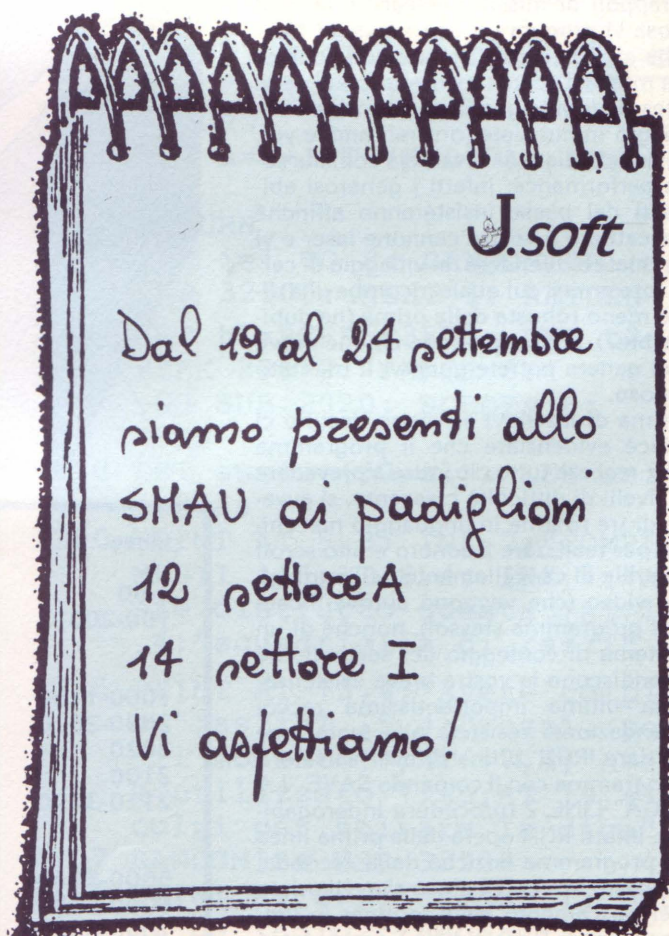 J soft
Dal 19 al 24 settembre
siamo presenti allo
SMAU ai padiglioni
12 settore A
14 settore I
Vi aspettiamo!